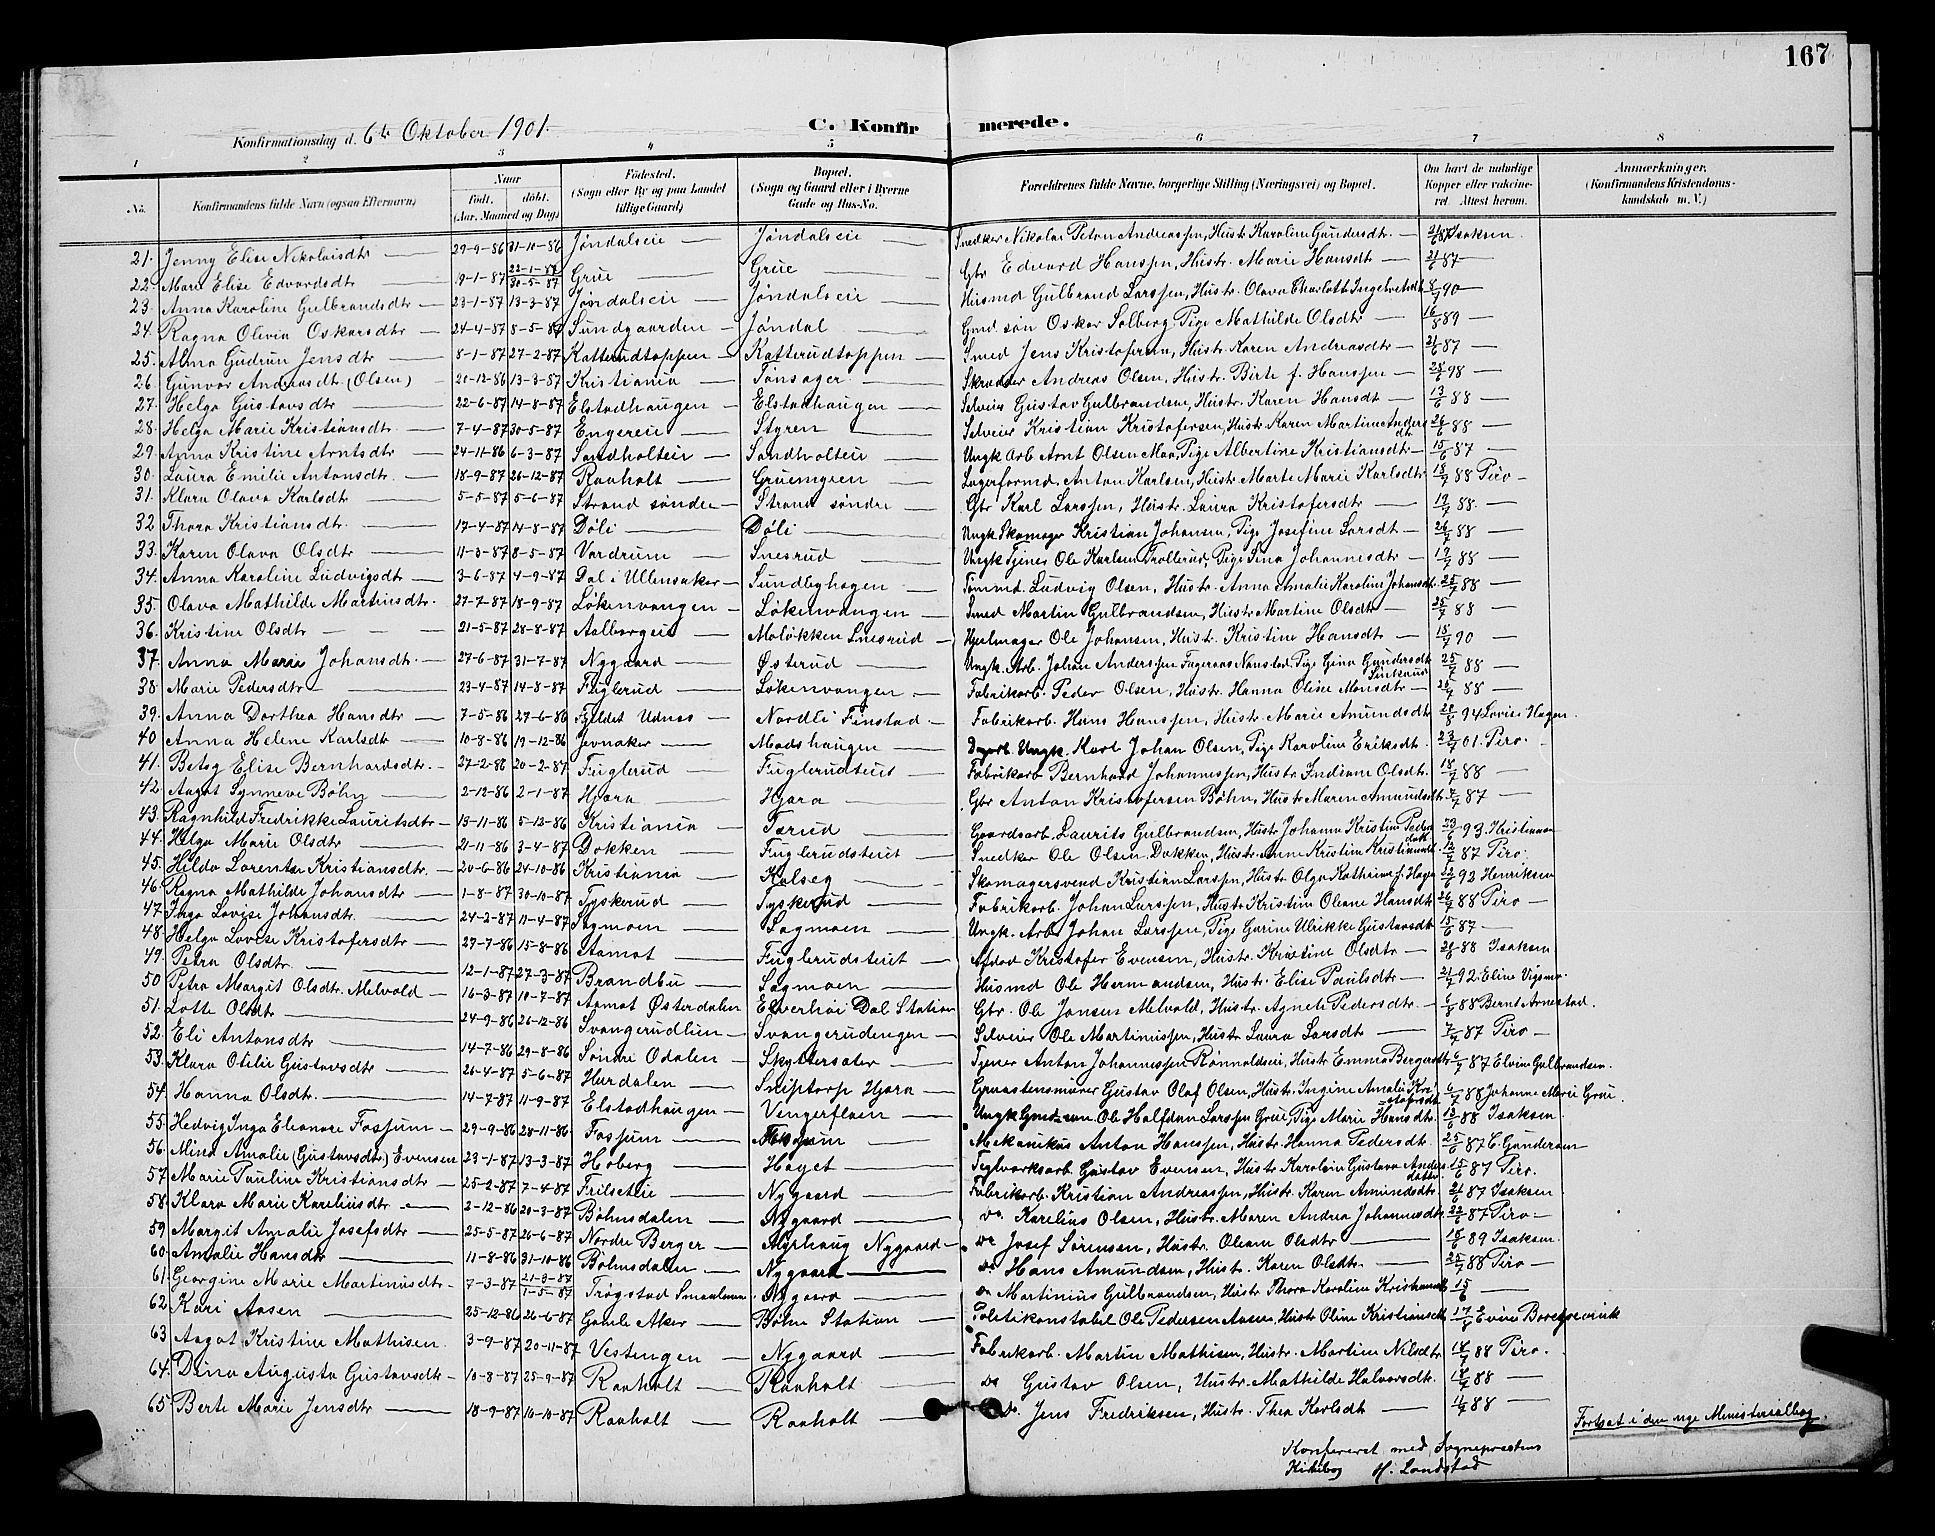 167
Konfirmationsdag d. 6te Oktober 1901.
C. Konfirmerede.
1 2 3 4 5 6 7 8
No. Konfirmandens fulde Navn (ogsaa Efternavn) Naar født. døbt. (Aar. Maaned og Dag) Fødested. (Sogn eller By og paa Landet tillige Gaard) Bopæl. (Sogn og Gaard eller i Byerne Gade og Hus-No. Forældrenes fulde Navne, borgerlige Stilling (Næringsvei) og Bopæl. Om havt de naturlige Kopper eller vakcineret. Attest herom. Anmærkninger. (Konfirmandens Kristendomskundskab m. V.)
21. Jenny Elise Nikolaisdtr 29-9-86 31-10-86 Jøndalseie Jøndalseie Snedker Nikolai Peter Andreassen, Hustr. Karoline Gundersdt. 21/6 87 Isaksen.
22. Marie Elise Edvardsdtr 9-1-87 22-1-87 30-5-87 Grue Grue Gbr Edvard Hanssen, Hustr. Marie Hansdt 21/6 87
23. Anna Karoline Gulbrandsdtr 23-1-87 13-3-87 Jøndalseie Jøndalseie Husmd Gulbrand Larssen, Hustr. Olava Charlott Ingebretsdt 8/7 90
24. Ragna Olivia Oskarsdtr 24-4-87 8-5-87 Sundgaarden Jøndal Gmd. søn Oskar Solberg Pige Mathilde Olsdtr 16/8 89
25. Alma Gudrun Jensdtr 8-1-87 27-2-87 Katterudtoppen Katterudtoppen Smed Jens Kristofersen, Hustr. Karen Andreasdtr 21/6 87
26. Gunvor Andreasdtr (Olsen) 20-12-86 13-3-87 Kristiania Tønsager Skrædder Andreas Olsen, Hustr. Birte f. Hanssen 25/6 98
27. Helga Gustavsdtr 22-6-87 14-8-87 Elstadhaugen Elstadhaugen Selveier Gustav Gulbrandsen, Hustr. Karen Hansdt 13/6 88
28. Helga Marie Kristiansdtr. 7-4-87 30-5-87 Engereie Styren Selveier Kristian Kristofersen, Hustr Karen Martine Andersdtr 26/6 88
29. Anna Kristine Arntsdtr 24-11-86 6-3-87 Sandholteie Sandholteie Ungk Arb Arnt Olsen Moe, Pige Albertine Kristiansdt 15/6 87
30. Laura Emilie Antonsdtr. 18-9-87 26-12-87 Raaholt Gruemyren Lagerformd. Anton Karlsen, Hustr. Marte Marie Karlsdtr 18/7 88 Piro
31. Klara Olava Karlsdtr 5-5-87 5-6-87 Strand søndre Strand søndre Gbr Karl Larssen, Hustr. Laura Kristofersdtr 19/7 88.
32 Thora Kristiansdtr. 17-4-87 14-8-87 Døli Døli Ungk Skomager Kristian Johansen, Pige Josefine Larsdt 26/7 88
33. Karen Olava Olsdtr 11-3-87 8-5-87 Vardrum Snesrud Ungk Tjener Ole Karlsen Trollerud, Pige Sina Johannesdtr 19/7 88
34. Anna Karoline Ludvigsdtr 3-6-87 4-9-87 Dal i Ullensaker Sundbyhagen Tømmd. Ludvig Olsen, Hustr. Anna Amalie Karoline Johansdt. 25/7 88
35. Olava Mathilde Martinsdtr. 27-7-87 18-9-87 Løkenvangen Løkenvangen Smed Martin Gulbrandsen, Hustr Martine Olsdt 25/7 88
36. Kristine Olsdtr 21-5-87 28-8-87 Aalborgeie Moløkken Snesrud Hjulmager Ole Johansen, Hustr. Kristine Hansdt 18/7 90
37. Anna Marie Johansdtr. 27-6-87 31-7-87 Nygaard Østerud Ungk. Arb. Johan Anderssen Fageraas Nanstad, Pige Gina Gundersdt 25/7 88
38. Marie Pedersdtr 23-4-87 14-8-87 Fuglerud Løkenvangen Fabrikarb. Peder Olsen, Hustr. Hanna Olise Monsdtr 25/7 88
39. Anna Dorthea Hansdtr 7-5-86 27-6-86 Fjeldet Udnes Nordli Finstad Fabrikarb. Hans Hanssen, Hustr. Marie Amundsdt 28/8 94 Lovise Hagen.
40 Anna Helene Karlsdt 10-8-86 19-12-86 Jevnaker Madshaugen Dagarb. Ungk. Karl Johan Olsen, Pige Karoline Eriksdt. 23/7 01. Piro.
41. Betsy Elise Bernhardsdtr. 27-2-86 20-2-87 Fuglerud Fuglerudsteiet Fabrikarb Bernhard Johannessen, Hustr. Indiane Olsdt. 18/7 88
42. Aagot Synneve Bøhn 2-12-86 2-1-87 Hjera Hjera Gbr Anton Kristofersen Bøhn, Hustr Maren Amundsdt. 7/7 87
43. Ragnhild Fredrikke Lauritsdtr 13-11-86 5-12-86 Kristiania Tærud Gaardsarb. Laurits Gulbrandsen, Hustr. Johanna Kristine Peders datt 23/6 93. Kristensen
44. Helga Marie Olsdtr 21-11-86 3-4-87 Dokken Fuglerudsteiet Snedker Ole Olsen Dokken, Hustr. Anne Kristine Kristiansd. 12/7 87 Piro.
45. Hilda Lorentse Kristiansdtr. 20-6-86 24-10-86 Kristiania Kalseg Skomagersvend Kristian Larssen, Hustr Olga Kathrine f. Hagen 12/6 92 Henriksen
46. Ragna Mathilde Johansdtr 1-8-87 30-10-87 Tyskerud Tyskerud Fabrikarb. Johan Larssen, Hustr. Kristine Oleane Hansdt 26/7 88 Piro
47. Inga Lovise Johansdtr. 24-2-87 11-4-87 Sagmoen Sagmoen Ungk. Arb Johan Larssen, Pige Gurine Ulrikke Gustavsdt 15/6 87
48. Helga Lovise Kristofersdtr 27-7-86 15-8-86 Aamot Fuglerudsteiet Afdød Kristofer Evensen, Hustr. Kristine Olsdtr 28/8 88 Isaksen
49. Petra Olsdtr. 12-1-87 27-3-87 Brandbu Sagmoen Husmd Ole Hermandsen, Hustr. Elise Paulsdtr 21/7 92. Eline Vigsmo.
50 Petra Margit Olsdtr. Melvold 16-3-87 10-7-87 Aamot Østerdalen Elverhøi Dal Station Gbr. Ole Jonsen Melvold, Hustr. Agnete Pedersdtr. 6/8 88 Bernt Arnestad.
51. Lotte Olsdtr 24-9-86 26-12-86 Svangerudlien Svangerudengen Selveier Ole Martinussen, Hustr. Laura Larsdt 7/7 87 Piro
52. Eli Antonsdtr 14-7-86 29-8-86 Søndre Odalen Skyttersæter Tjener Anton Johannessen Rønnaldseie, Hustr Emma Bergersdt 6/7 87 Elvine Gulbrandsen.
53. Klara Otilie Gustavsdtr 26-4-87 5-6-87 Hurdalen Sneptorp Hjera Graastensmurer Gustav Olaf Olsen, Hustr. Ingine Amalie Kristofersdt 6/7 88 Johanne Marie Grue.
54. Hanna Olsdtr. 14-7-87 11-9-87 Elstadhaugen Vengerflaen Ungk Gmd. søn Ole Halfdan Larssen Grue, Pige Marie Hansdt. 13/6 88 Isaksen.
55. Hedvig Inga Eleonore Fossum 29-9-86 28-11-86. Fossum Fossum Mekanikus Anton Hanssen, Hustr. Hanna Pedersdtr. 25/8 87 C. Gundersen
56. Mina Amalie (Gustavsdtr) Evensen 23-1-87 13-3-87 Hoberg Høyet Teglværksarb. Gustav Evensen, Hustr Karoline Gustava Andersdatter. 15/6 87 Piro.
57. Marie Pauline Kristiansdtr 25-2-87 7-4-87 Frilsetlie Nygaard Fabrikarb. Kristian Andreassen, Hustr. Karen Amundsdtr. 21/6 87 Isaksen
58. Klara Marie Kareliusdtr 2-12-86 20-3-87 Bøhnsdalen Nygaard do. Karelius Olsen, Hustr. Maren Andrea Johannesdt. 22/6 87 Piro
59 Margit Amalie Josefsdtr 25-5-87 26-6-87 Nordre Berger Myrhaug Nygaard do Josef Sørensen, Hustr. Oleane Olsdtr 18/6 89 Isaksen.
60. Amalie Hansdtr 11-8-86 31-10-86 Bøhnsdalen Nygaard do Hans Amundsen, Hustr. Karen Olsdt. 25/7 88 Piro
61. Georgine Marie Martinusdtr. 7-3-87 21-3-87 1-5-87 Trøgstad Smaalenene Nygaard do Martinius Gulbrandsen, Hustr Thora Karoline Kristiansdt 15/6
62. Kari Aasen 25-12-86 26-6-87 Gamle Aker Bøhn Station Politikonstabel Ole Pedersen Aasen, Hustr Oline Kristiansdt
63 Aagot Kristine Mathisen. 3-9-87 20-11-87 Vestengen Nygaard Fabrikarb. Martin Mathisen, Hustr. Martine Nilsdtr 18/7 88 Piro.
64. Dina Augusta Gustavsdtr. 10-8-87 25-9-87 Raaholt Raaholt do Gustav Olsen, Hustr. Mathilde Halvorsdt. 18/7 88
65. Berte Marie Jensdtr 18-9-87 16-10-87 Raaholt Raaholt do. Jens Fredriksen, Hustr. Thea Karlsdt 11/7 88
Fortsat i den nye Ministerialbog.
Konfereret med Sogneprestens
Kirkebog H. Landstad